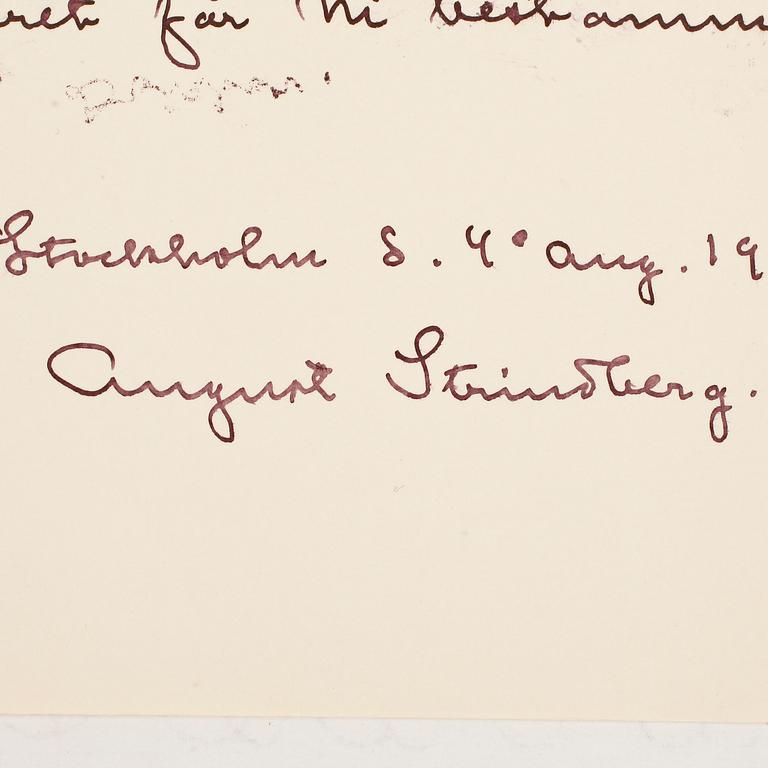 ret får Ni bestämm
Stockholm d. 4e aug. 19
August Strindberg.